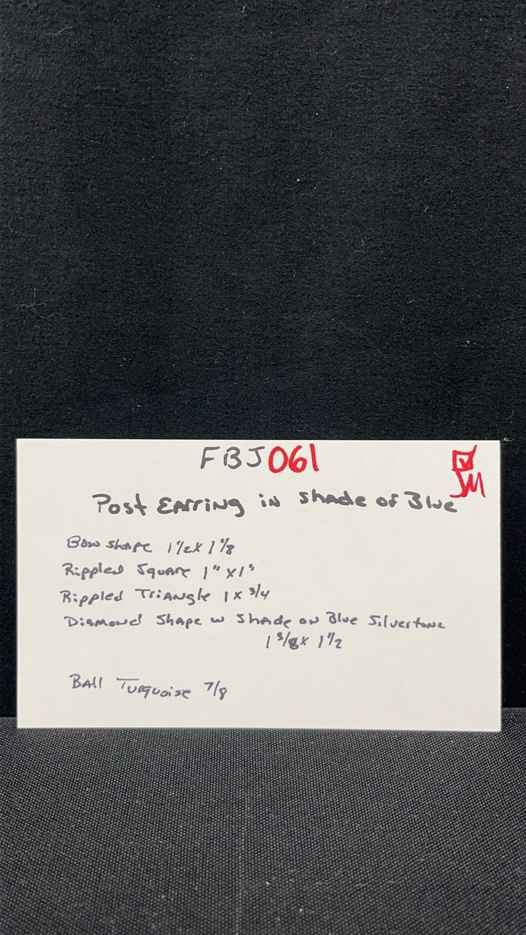 FBJ061
☑
JM
Post Earring in Shade of Blue
Bow shape 1 1/2 x 1 1/8
Rippled Square 1" x 1"
Rippled Triangle 1 x 3/4
Diamond Shape w Shade on Blue Silvertone
1 5/8 x 1 1/2
Ball Turquoise 7/8